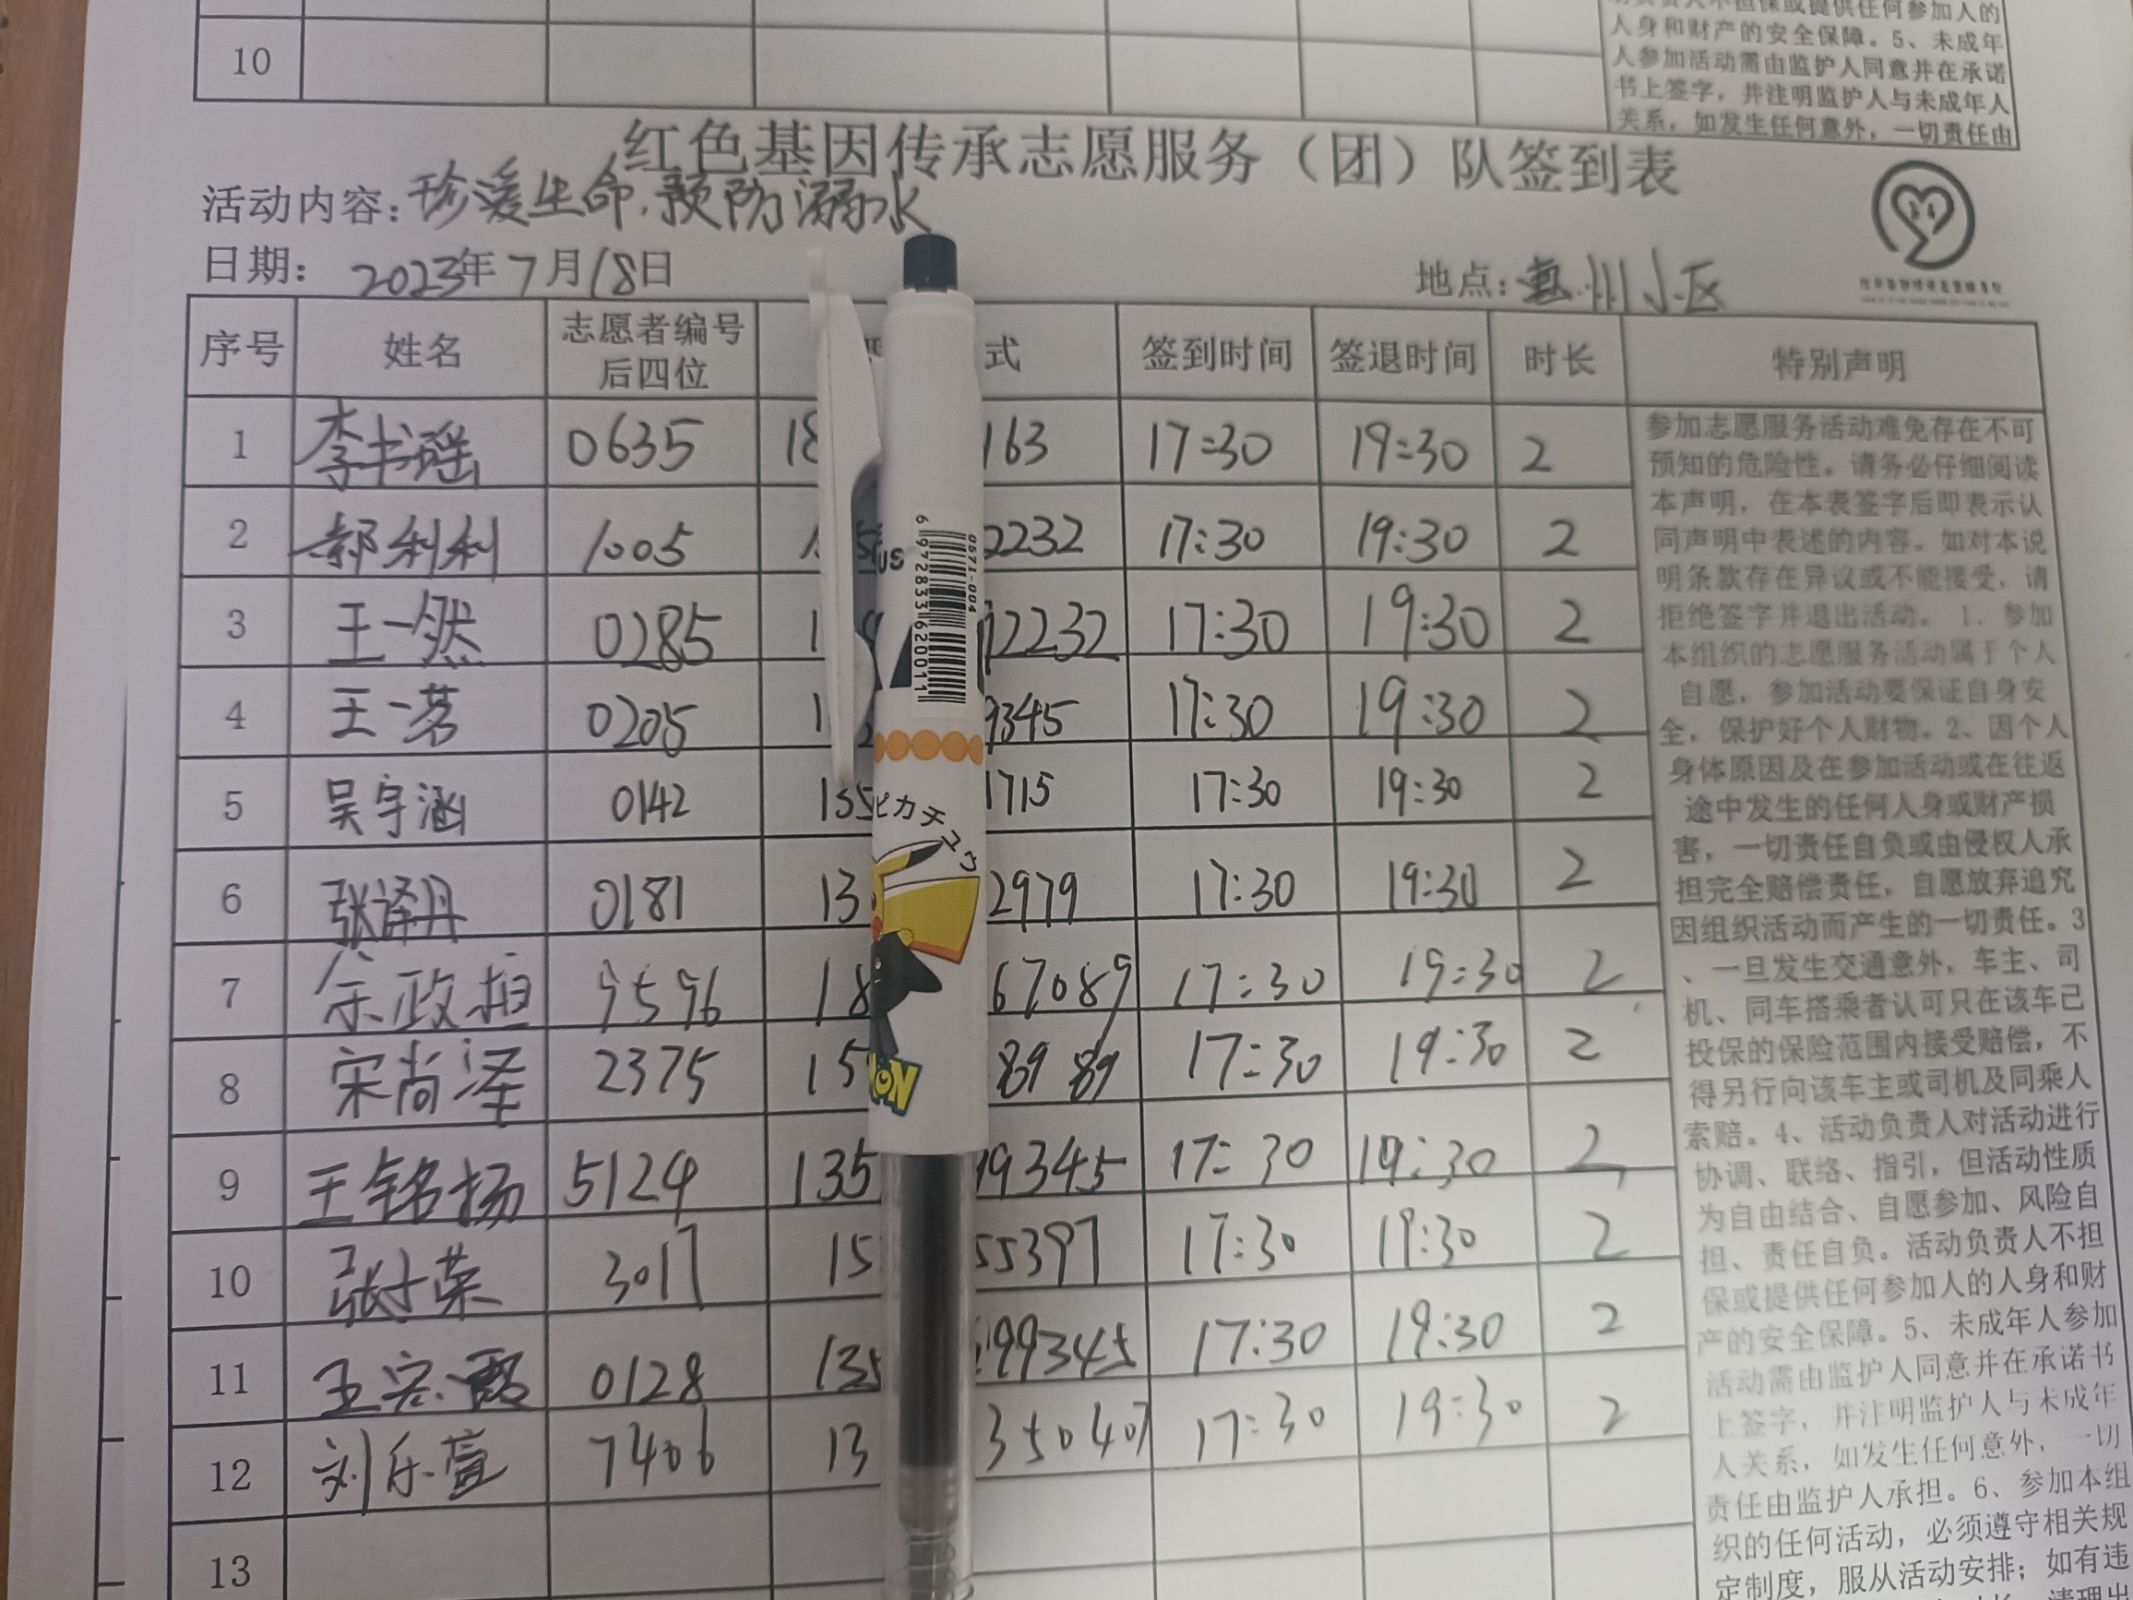 人身和财产的安全保障。5、未成年
人参加活动需由监护人同意并在承诺
书上签字，并注明监护人与未成年人
关系，如发生任何意外，一切责任由
10
红色基因传承志愿服务（团）队签到表
活动内容：珍爱生命.预防溺水
日期： 2023年7月18日 地点：惠州小区
序号 姓名 志愿者编号后四位 式 签到时间 签退时间 时长 特别声明
1 李书瑶 0635 18 163 17:30 19:30 2
2 郝利利 1005 2232 17:30 19:30 2
3 王一然 0285 1 2232 17:30 19:30 2
4 王一茗 0205 1 9345 17:30 19:30 2
5 吴宇涵 0142 155 1715 17:30 19:30 2
6 张译丹 0181 13 2979 17:30 19:30 2
7 宗政担 9596 18 67089 17:30 19:30 2
8 宋尚泽 2375 15 8989 17:30 19:30 2
9 王铭扬 5124 135 99345 17:30 19:30 2
10 张荣 3017 15 55397 17:30 19:30 2
11 王 0128 135 99345 17:30 19:30 2
12 刘乐萱 7406 13 350407 17:30 19:30 2
13
参加志愿服务活动难免存在不可
预知的危险性。请务必仔细阅读
本声明，在本表签字后即表示认
同声明中表述的内容。如对本说
明条款存在异议或不能接受，请
拒绝签字并退出活动。 1、参加
本组织的志愿服务活动属于个人
自愿，参加活动要保证自身安
全，保护好个人财物。2、因个人
身体原因及在参加活动或在往返
途中发生的任何人身或财产损
害，一切责任自负或由侵权人承
担完全赔偿责任，自愿放弃追究
因组织活动而产生的一切责任。3
、一旦发生交通意外，车主、司
机、同车搭乘者认可只在该车已
投保的保险范围内接受赔偿，不
得另行向该车主或司机及同乘人
索赔。4、活动负责人对活动进行
协调、联络、指引，但活动性质
为自由结合、自愿参加、风险自
担、责任自负。活动负责人不担
保或提供任何参加人的人身和财
产的安全保障。5、未成年人参加
活动需由监护人同意并在承诺书
上签字，并注明监护人与未成年
人关系，如发生任何意外，一切
责任由监护人承担。6、参加本组
织的任何活动，必须遵守相关规
定制度，服从活动安排；如有违
0571-004
6 972833 620011
ピカチュウ